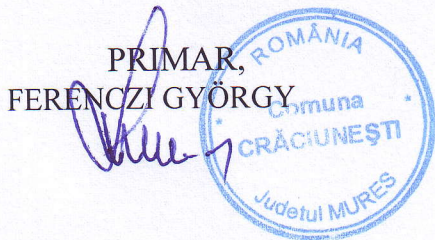 PRIMAR,
FERENCZI GYÖRGY
ROMÂNIA
Comuna
CRĂCIUNEŞTI
Judeţul MUREŞ